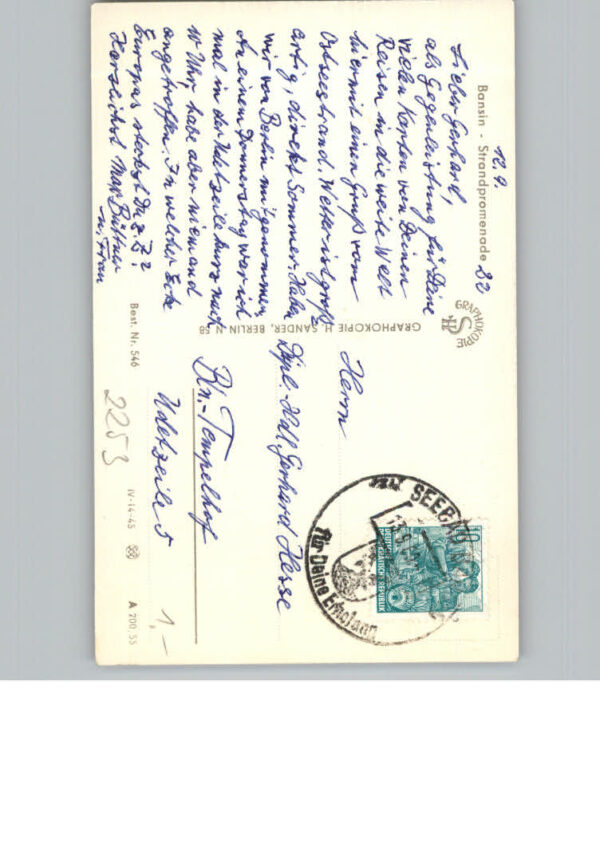 Bansin - Strandpromenade
12.9.
Lieber Gerhard,
als Gegenleistung für Deine
vielen Karten von Deinen
Reisen in die weite Welt
hiermit einen Gruß vom
Ostseestrand. Wetter ist groß=
artig, direkt Sommer. Haben
wir von Berlin mitgenommen
An einem Donnerstag war ich
mal in der Udetzeile kurz nach
10 Uhr, habe aber niemand
angetroffen. In welcher Ecke
Europas steckst Du z. Z.?
Herzlichst Max Büttner
u. Frau
GRAPHOKOPIE
GRAPHOKOPIE H. SANDER, BERLIN N 58
Best. Nr. 546
IV-14-45
A 700 55
Herrn
Dipl.-Hdl. Gerhard Hesse
Bln.-Tempelhof
Udetzeile 5
2253
1,-
SEEBAD
für Deine Erholung
10
DEUTSCHE
DEMOKRATISCHE REPUBLIK